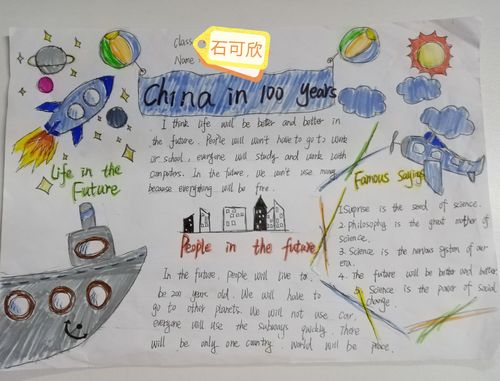 Class
Name:
石可欣
China in 100 Years
I think life will be better and better in
the future. People will won't have to go to work
or school, everyone will study and work with
computers. In the future, we won't use money
because everything will be free.
Life in the
Future
People in the future
In the future, people will live to
be 200 years old. We will have to
go to other planets. We will not use car.
everyone will use the subways quickly. There
will be only one country. world will be peace.
Famous Sayings
1. Suprise is the seed of science.
2. philosophy is the great mother of
science.
3. Science is the nervous system of our
era.
4. The future will be better and better
5. Science is the power of social
change.